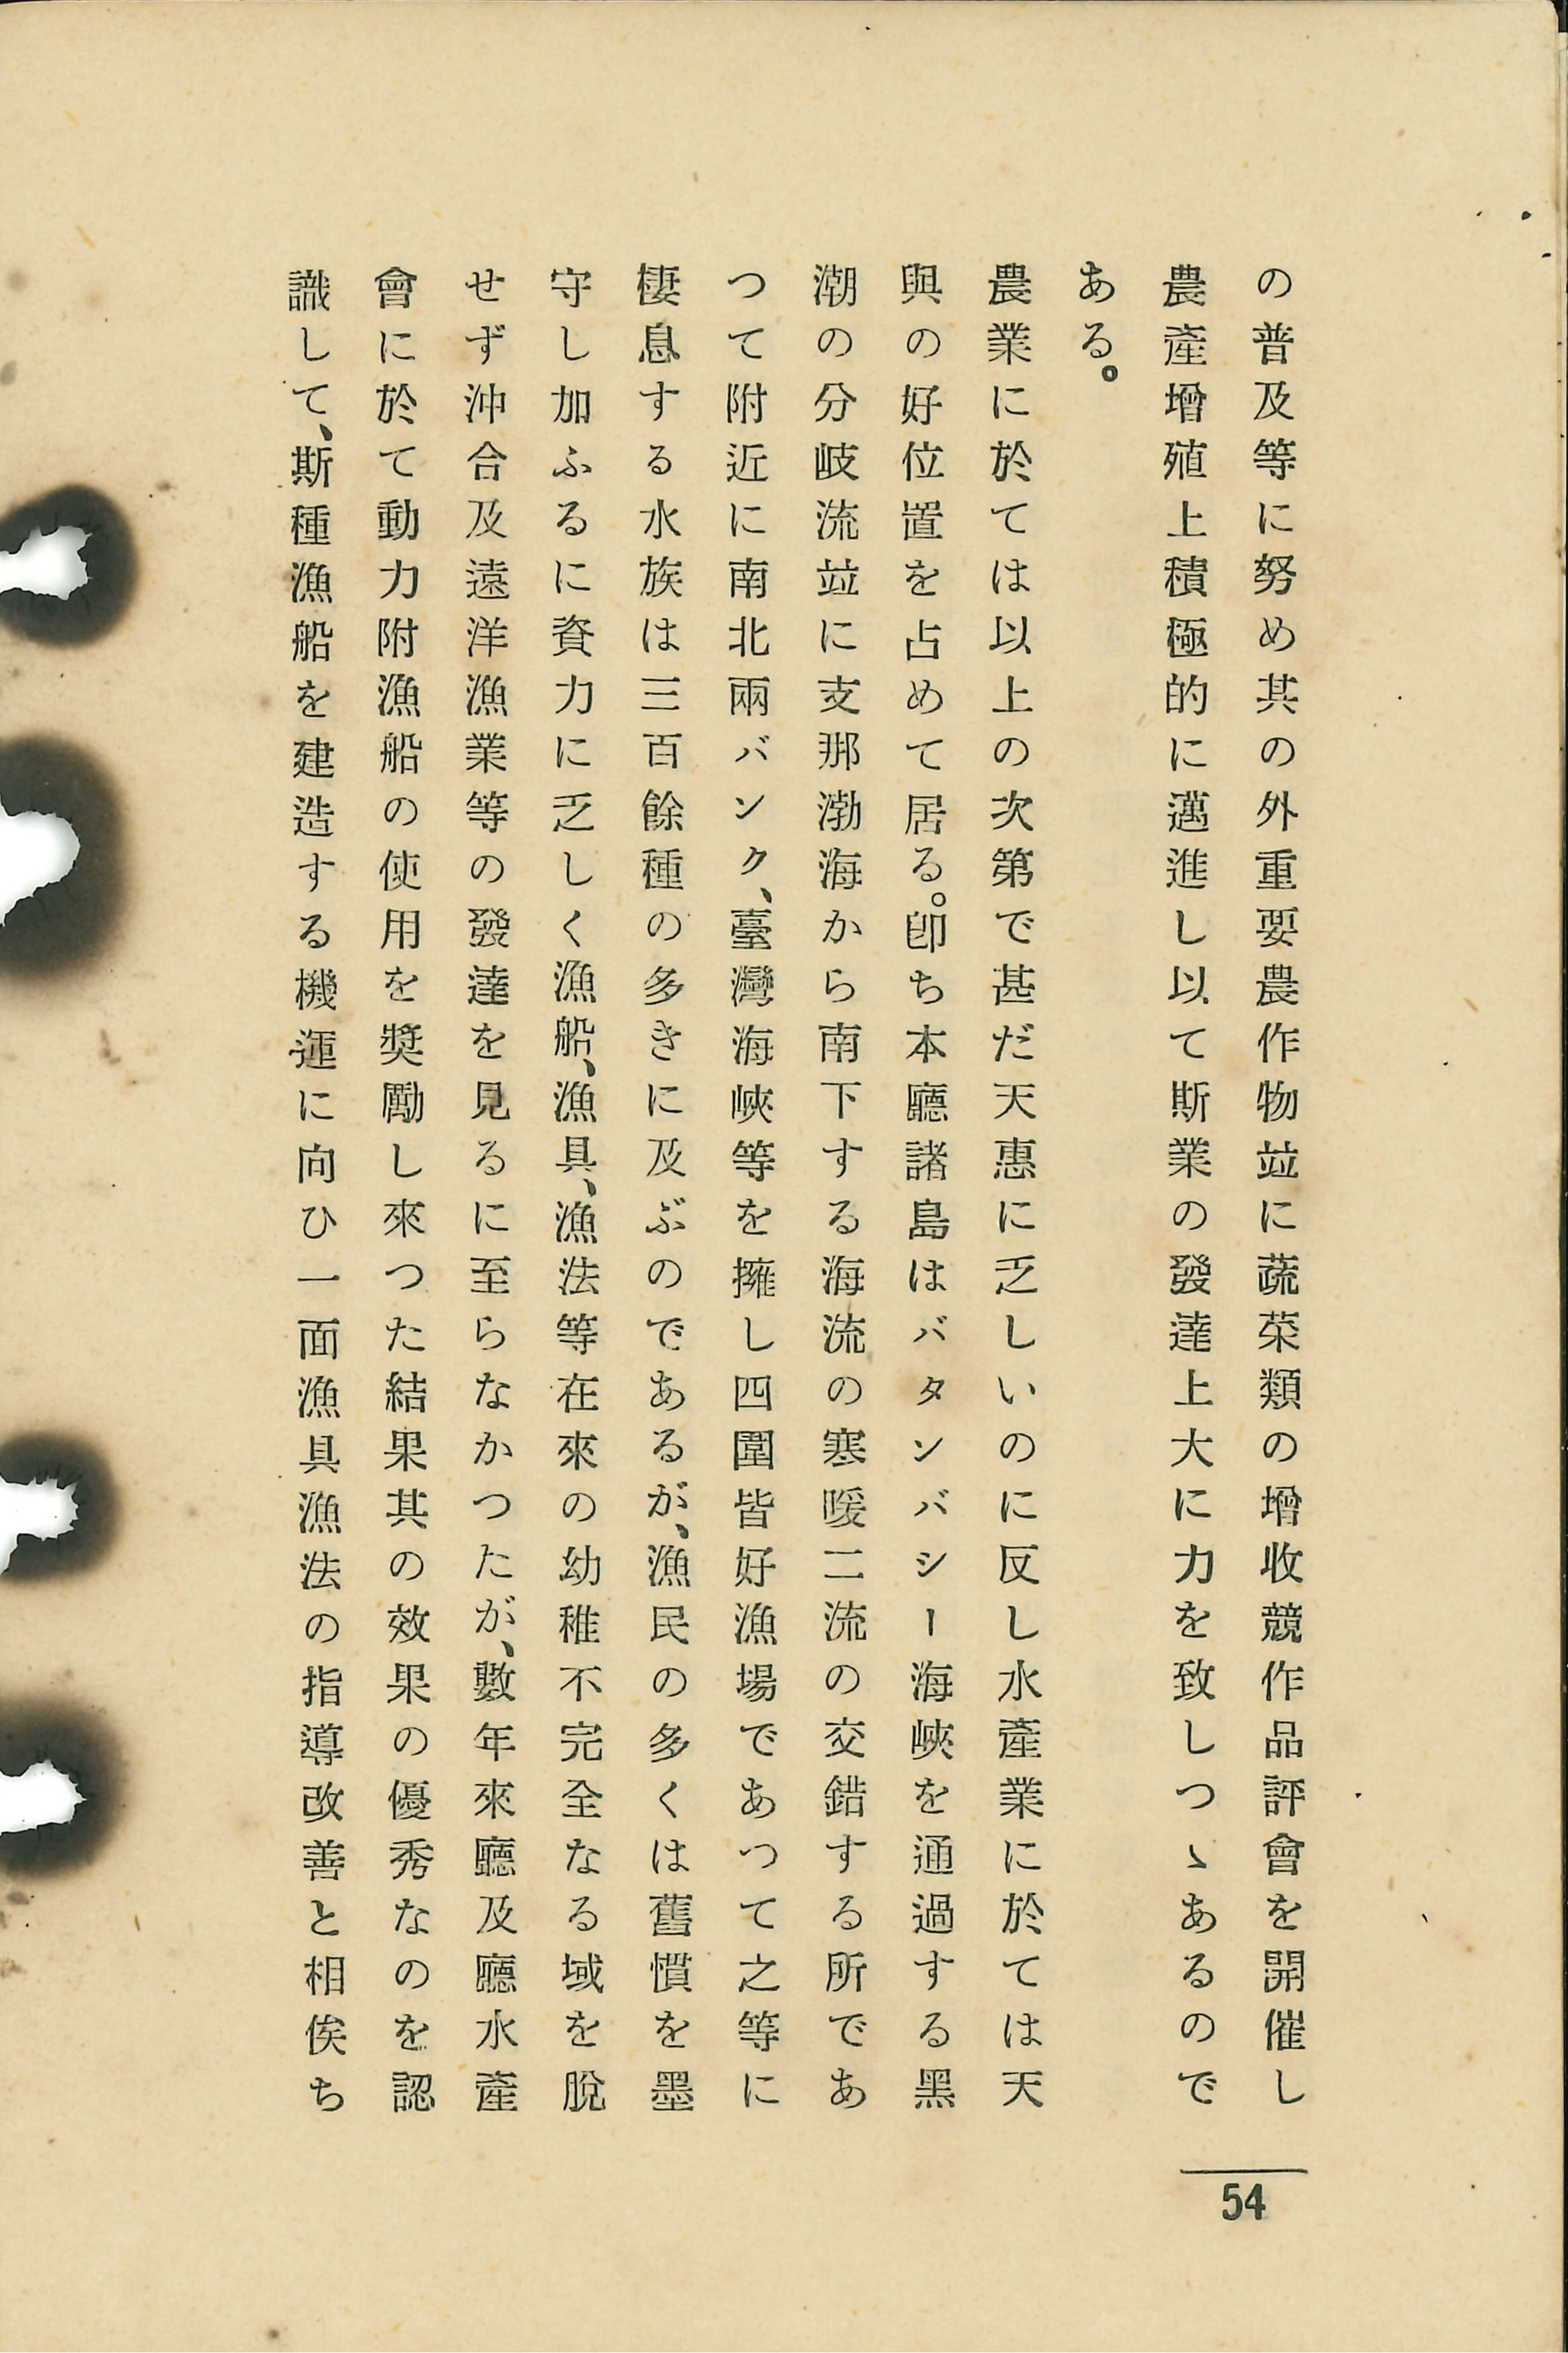 の普及等に努め其の外重要農作物竝に蔬菜類の增收競作品評會を開催し
農產增殖上積極的に邁進し以て斯業の發達上大に力を致しつゝあるので
ある。
農業に於ては以上の次第で甚だ天惠に乏しいのに反し水產業に於ては天
與の好位置を占めて居る。卽ち本廳諸島はバタンバシー海峽を通過する黑
潮の分岐流竝に支那渤海から南下する海流の寒暖二流の交錯する所であ
つて附近に南北兩バンク、臺灣海峽等を擁し四圍皆好漁場であつて之等に
棲息する水族は三百餘種の多きに及ぶのであるが、漁民の多くは舊慣を墨
守し加ふるに資力に乏しく漁船、漁具、漁法等在來の幼稚不完全なる域を脫
せず沖合及遠洋漁業等の發達を見るに至らなかつたが、數年來廳及廳水產
會に於て動力附漁船の使用を奬勵し來つた結果其の效果の優秀なのを認
識して、斯種漁船を建造する機運に向ひ一面漁具漁法の指導改善と相俟ち
54